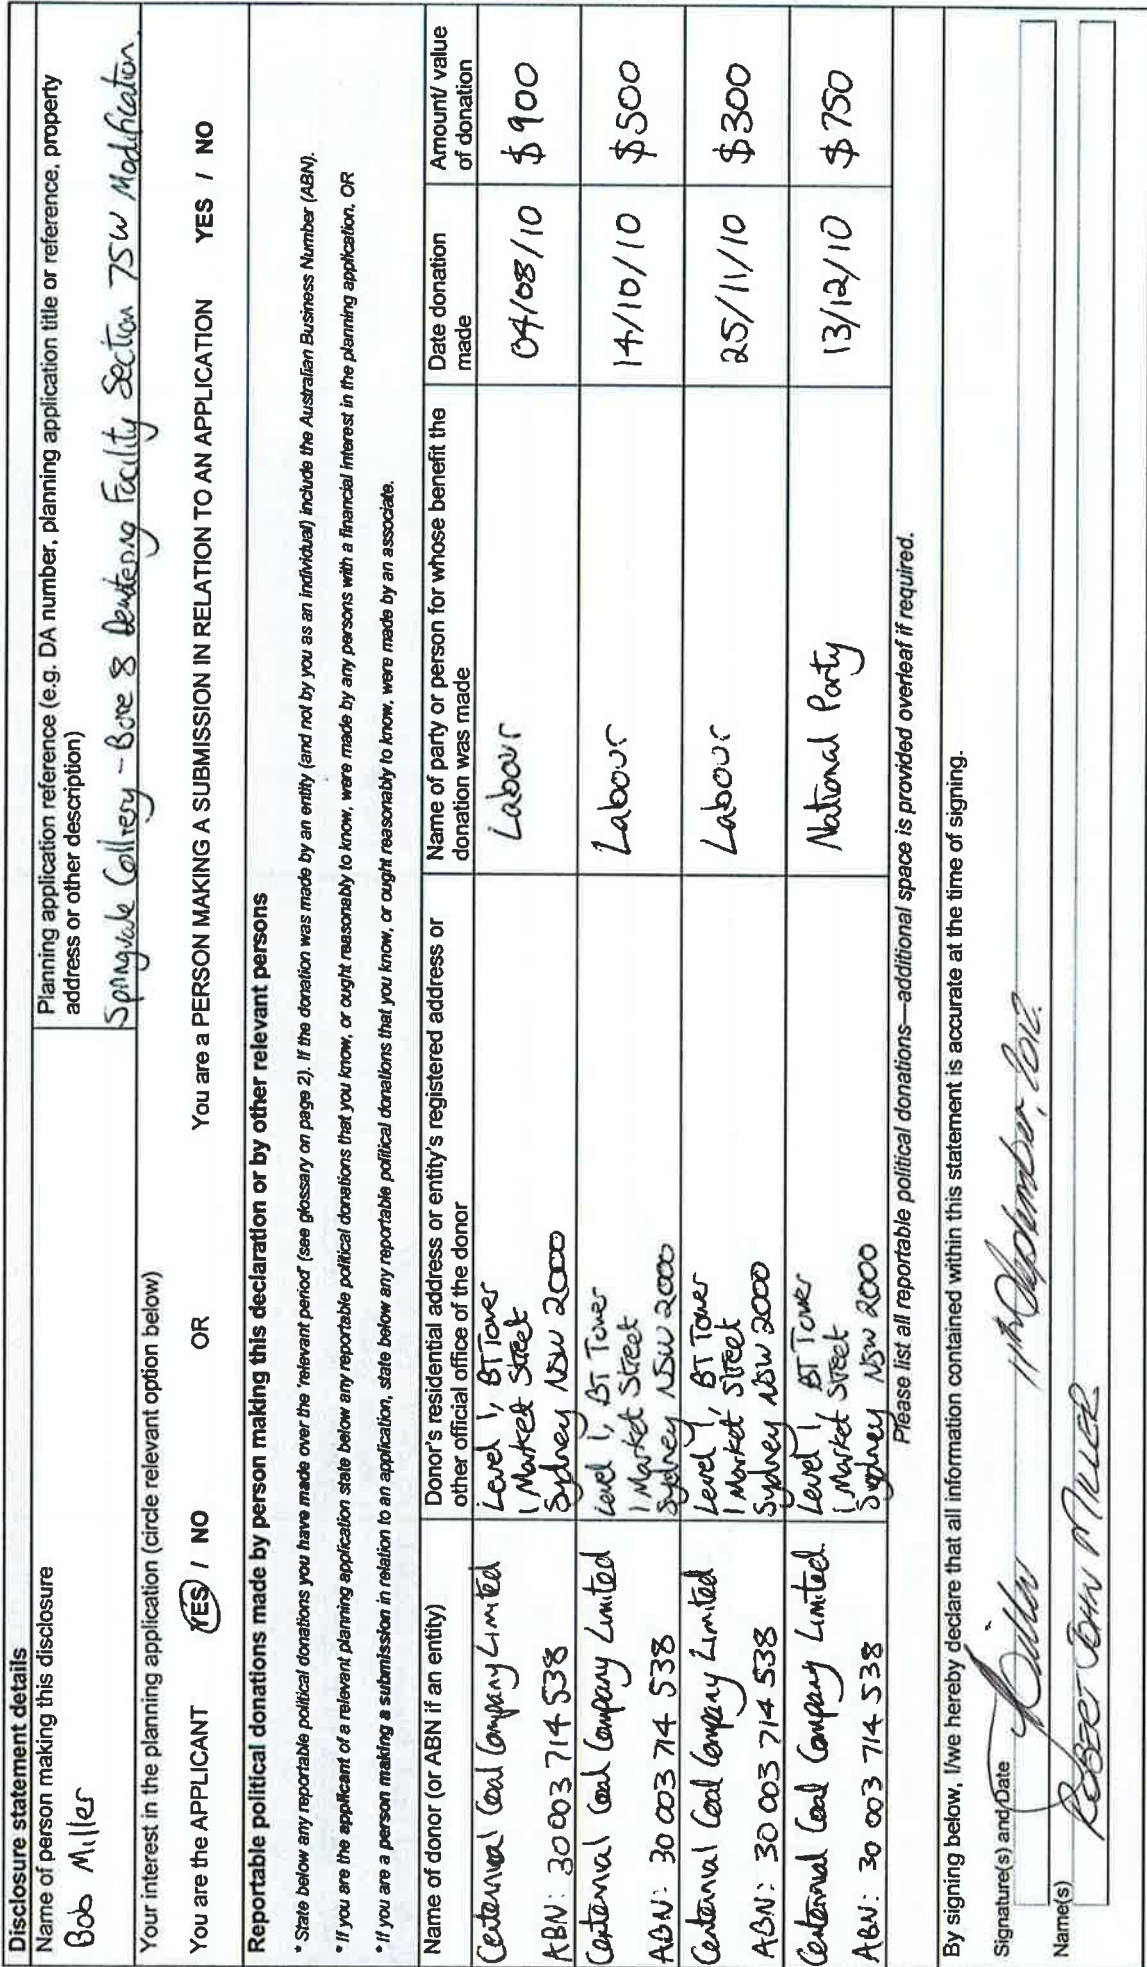 Disclosure statement details
Name of person making this disclosure
Bob Miller
Planning application reference (e.g. DA number, planning application title or reference, property
address or other description)
Springvale Colliery - Bore 8 Dewatering Facility Section 75W Modification
Your interest in the planning application (circle relevant option below)
You are the APPLICANT YES / NO OR You are a PERSON MAKING A SUBMISSION IN RELATION TO AN APPLICATION YES / NO
Reportable political donations made by person making this declaration or by other relevant persons
* State below any reportable political donations you have made over the 'relevant period' (see glossary on page 2). If the donation was made by an entity (and not by you as an individual) include the Australian Business Number (ABN).
* If you are the applicant of a relevant planning application state below any reportable political donations that you know, or ought reasonably to know, were made by any persons with a financial interest in the planning application, OR
* If you are a person making a submission in relation to an application, state below any reportable political donations that you know, or ought reasonably to know, were made by an associate.
Name of donor (or ABN if an entity)
Donor's residential address or entity's registered address or
other official office of the donor
Name of party or person for whose benefit the
donation was made
Date donation
made
Amount/ value
of donation
Centennial Coal Company Limited
ABN: 30 003 714 538
Level 1, BT Tower
1 Market Street
Sydney NSW 2000
Labour
04/08/10
$900
Centennial Coal Company Limited
ABN: 30 003 714 538
Level 1, BT Tower
1 Market Street
Sydney NSW 2000
Labour
14/10/10
$500
Centennial Coal Company Limited
ABN: 30 003 714 538
Level 1, BT Tower
1 Market Street
Sydney NSW 2000
Labour
25/11/10
$300
Centennial Coal Company Limited.
ABN: 30 003 714 538
Level 1, BT Tower
1 Market Street
Sydney NSW 2000
National Party
13/12/10
$750
Please list all reportable political donations—additional space is provided overleaf if required.
By signing below, I/we hereby declare that all information contained within this statement is accurate at the time of signing.
Signature(s) and Date
11th September, 2012.
Name(s)
ROBERT JOHN MILLER